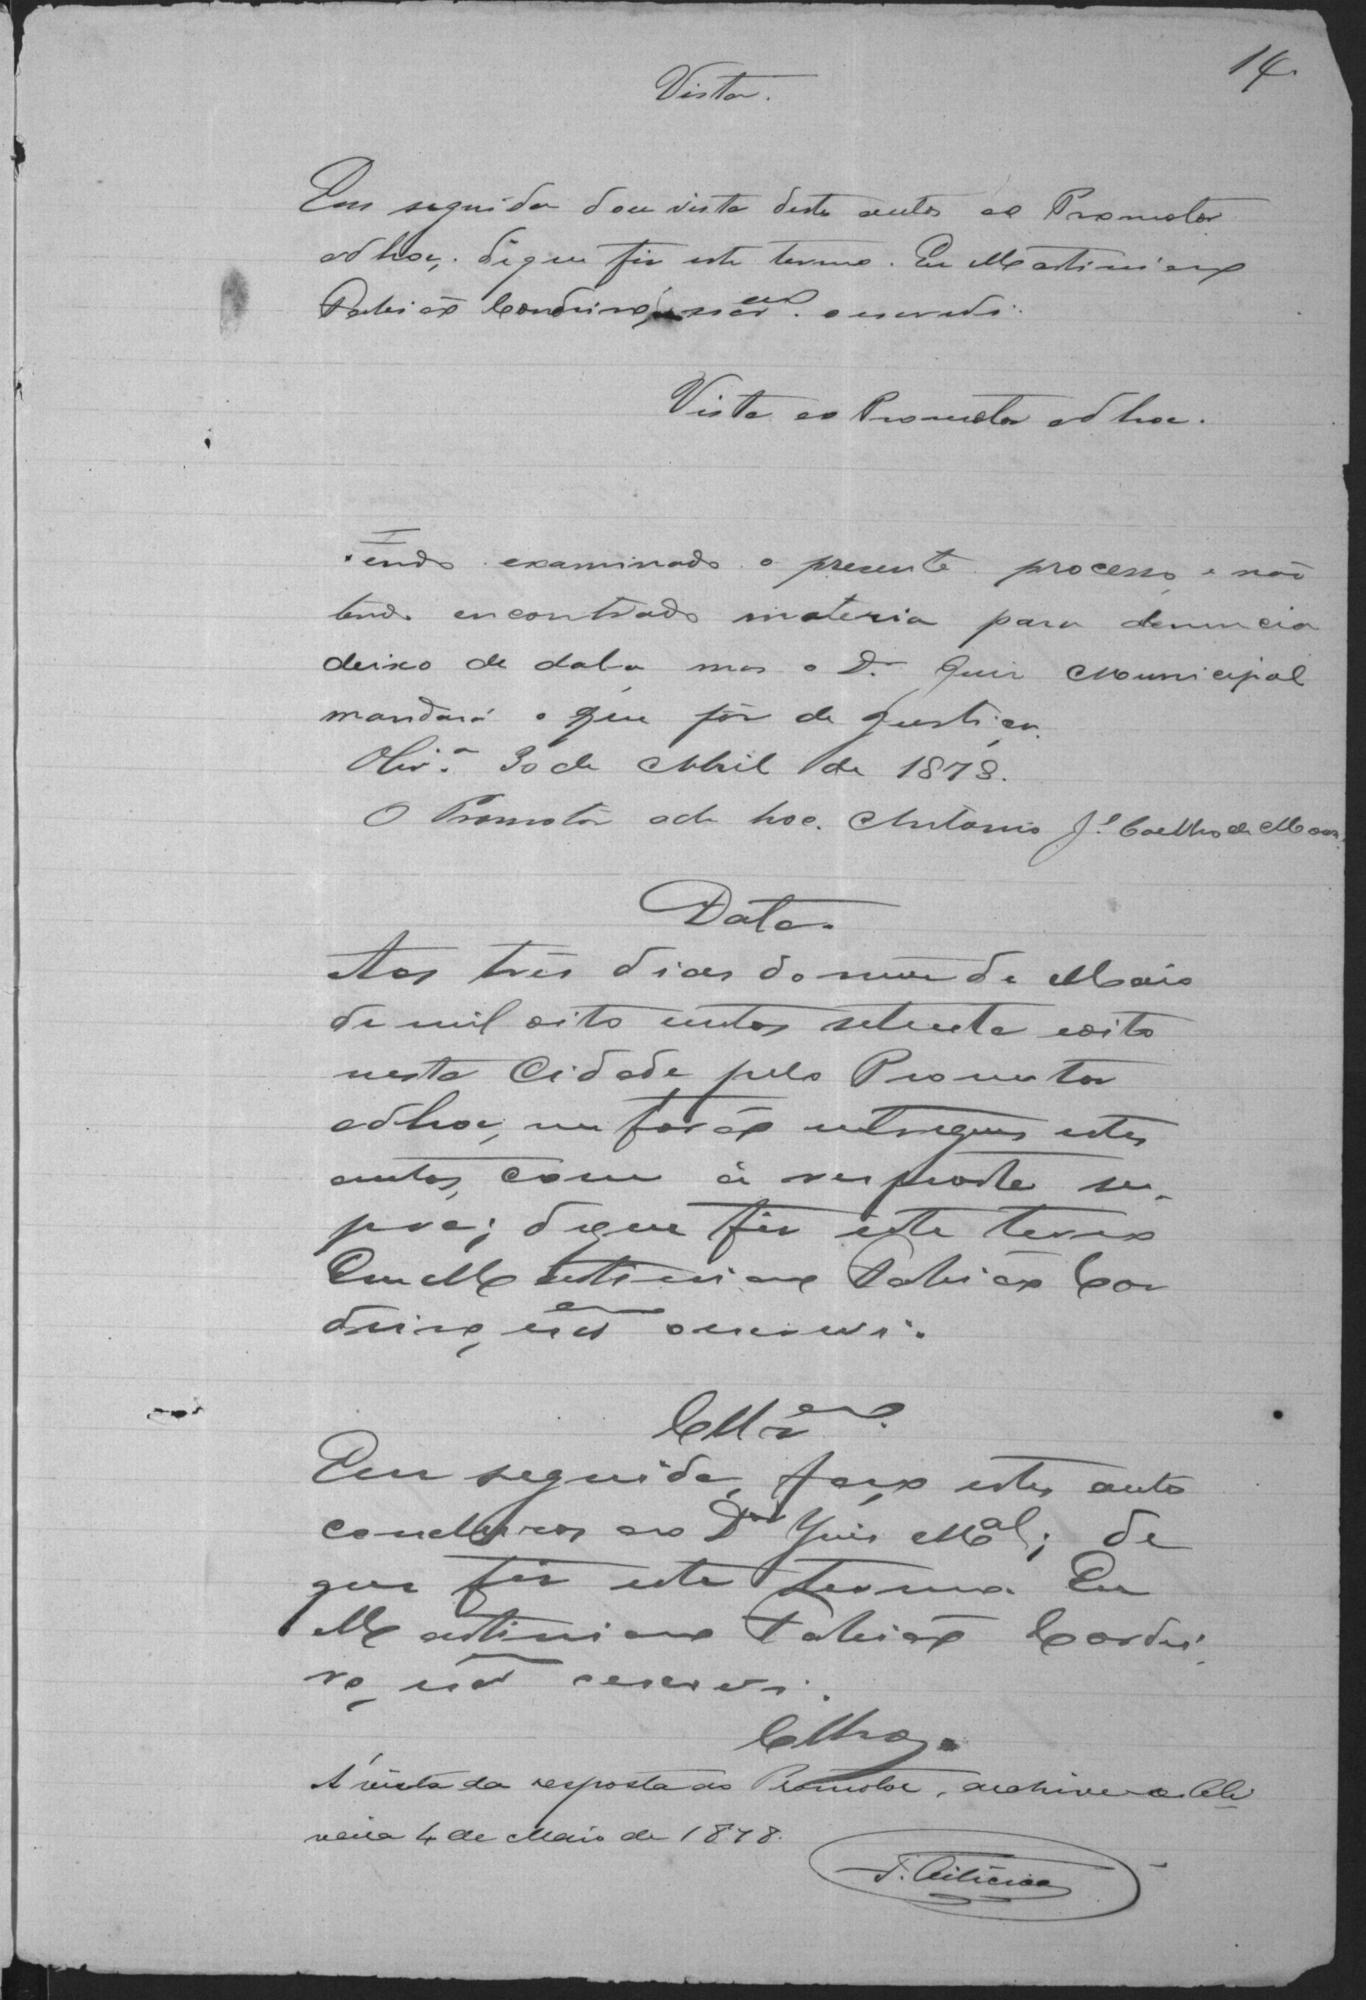 14.
Vista.
Em seguida dou vista destes autos ao Promotor
adhoc; de que fiz este termo. Eu Martiniano
Tobias Cordeiro, escram. o escrevi.
Vista ao Promotor adhoc.
Tendo examinado o presente processo e não
tendo encontrado materia para denuncia
deixo de dal-a mas o Dr. Juiz Municipal
mandará o que fôr de justiça.
Olivra. 30 de Abril de 1878.
O Promotor ad hoc. Antonio Je. Coelho de Moura
Data.
Aos três dias do mez de Maio
de mil oito centos setenta e oito
nesta Cidade, pelo Promotor
adhoc, me forão entregues estes
autos, com a resposta su-
pra; de que fiz este termo
Eu Martiniano Tobias Cor
deiro, escam o escrevi.
Cllzam.
Em seguida, faço estes autos
conclusos ao Dor Juiz Mal; de
que fiz este termo. Eu
Martiniano Tobias Cordei
ro, escam escrevi.
Cllzos.
A' vista da resposta do Promotor, archive-se. Oli
veira 4 de Maio de 1878.